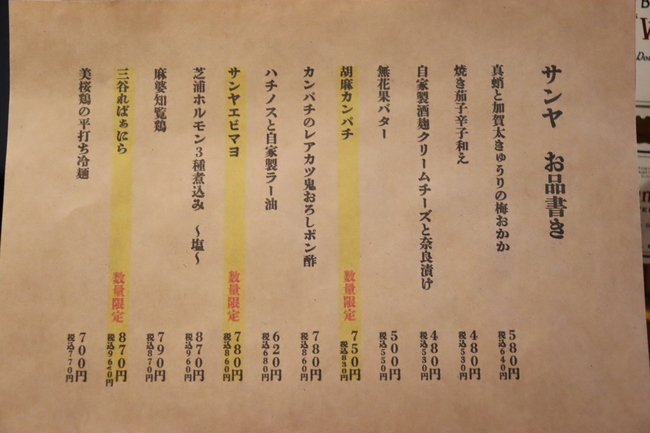 サンヤ お品書き
真蛸と加賀太きゅうりの梅おかか 580円 税込640円
焼き茄子辛子和え 480円 税込530円
自家製酒麹クリームチーズと奈良漬け 480円 税込530円
無花果バター 500円 税込550円
胡麻カンパチ 数量限定 750円 税込830円
カンパチのレアカツ鬼おろしポン酢 780円 税込860円
ハチノスと自家製ラー油 620円 税込680円
サンヤエビマヨ 数量限定 780円 税込860円
芝浦ホルモン3種煮込み 〜塩〜 870円 税込960円
麻婆知覧鶏 790円 税込870円
三谷ればぁにら 数量限定 870円 税込960円
美桜鶏の平打ち冷麺 700円 税込770円